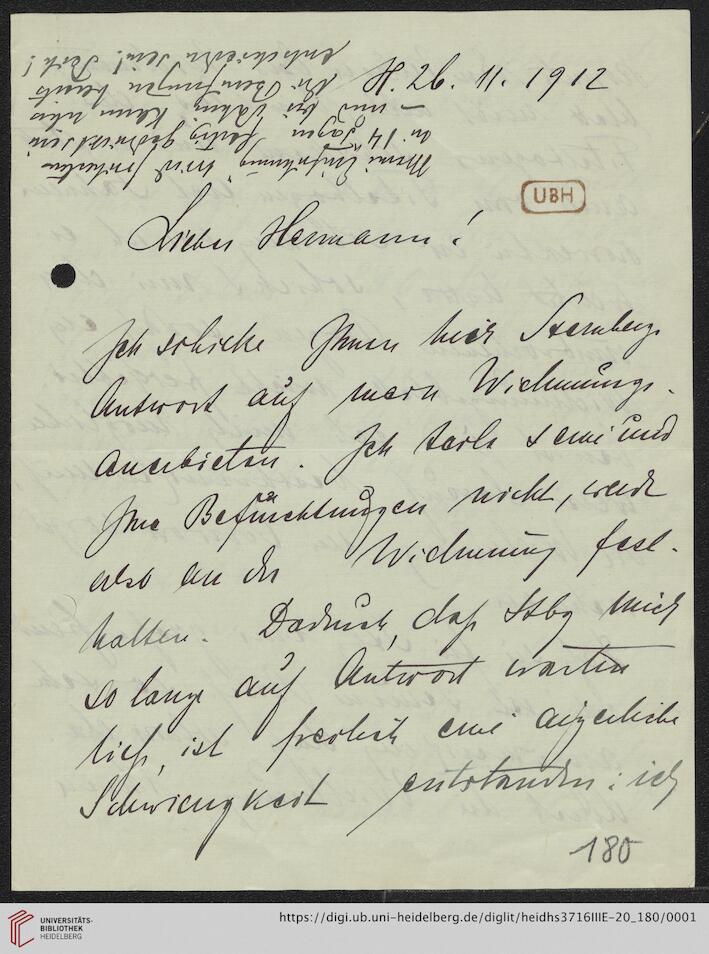 H. 26. 11. 1912
UBH
Lieber Hermann!
Ich schicke Ihnen hier Sternbergs
Antwort auf mein Widmungs-
anerbieten. Ich teile seine und
Ihre Befürchtungen nicht, werde
also an der Widmung fest-
halten. Dadurch, daß Stbg mich
so lange auf Antwort warten
ließ, ist freilich eine
Schwierigkeit entstanden: ich
Meine Einführung wird
in 14 Tagen fertig gedruckt sein
– und bei
die Berufungen bereits
entschieden sein!
180
UNIVERSITÄTS-
BIBLIOTHEK
HEIDELBERG
https://digi.ub.uni-heidelberg.de/diglit/heidhs3716IIIE-20_180/0001